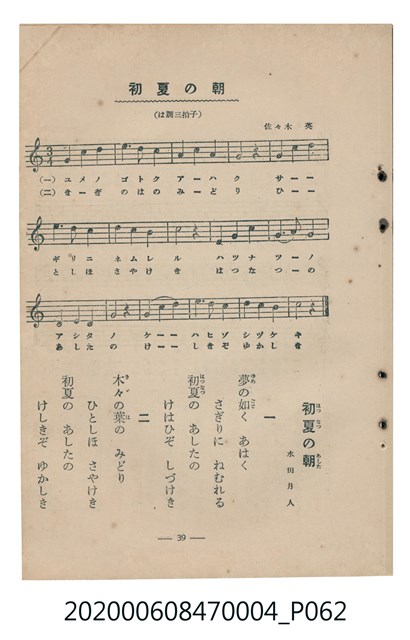 初夏の朝
(は調三拍子)
佐々木 英
(一)ユメノ ゴトク アーハク サーー
(二)きーぎのはのみーどり ひーー
ギリニ ネムレル ハツナ ツーノ
としほさやけき はつなつーの
アシタノ ケーーハヒゾシヅケキ
あしたの けーーしきぞゆかしき
初夏の朝
はつなつ あした
水田月人
一
夢の如く あはく
ゆめ ごと
さぎりに ねむれる
初夏の あしたの
はつなつ
けはひぞ しづけき
二
木々の葉の みどり
きゞ は
ひとしほ さやけき
初夏の あしたの
けしきぞ ゆかしき
— 39 —
202000608470004_P062